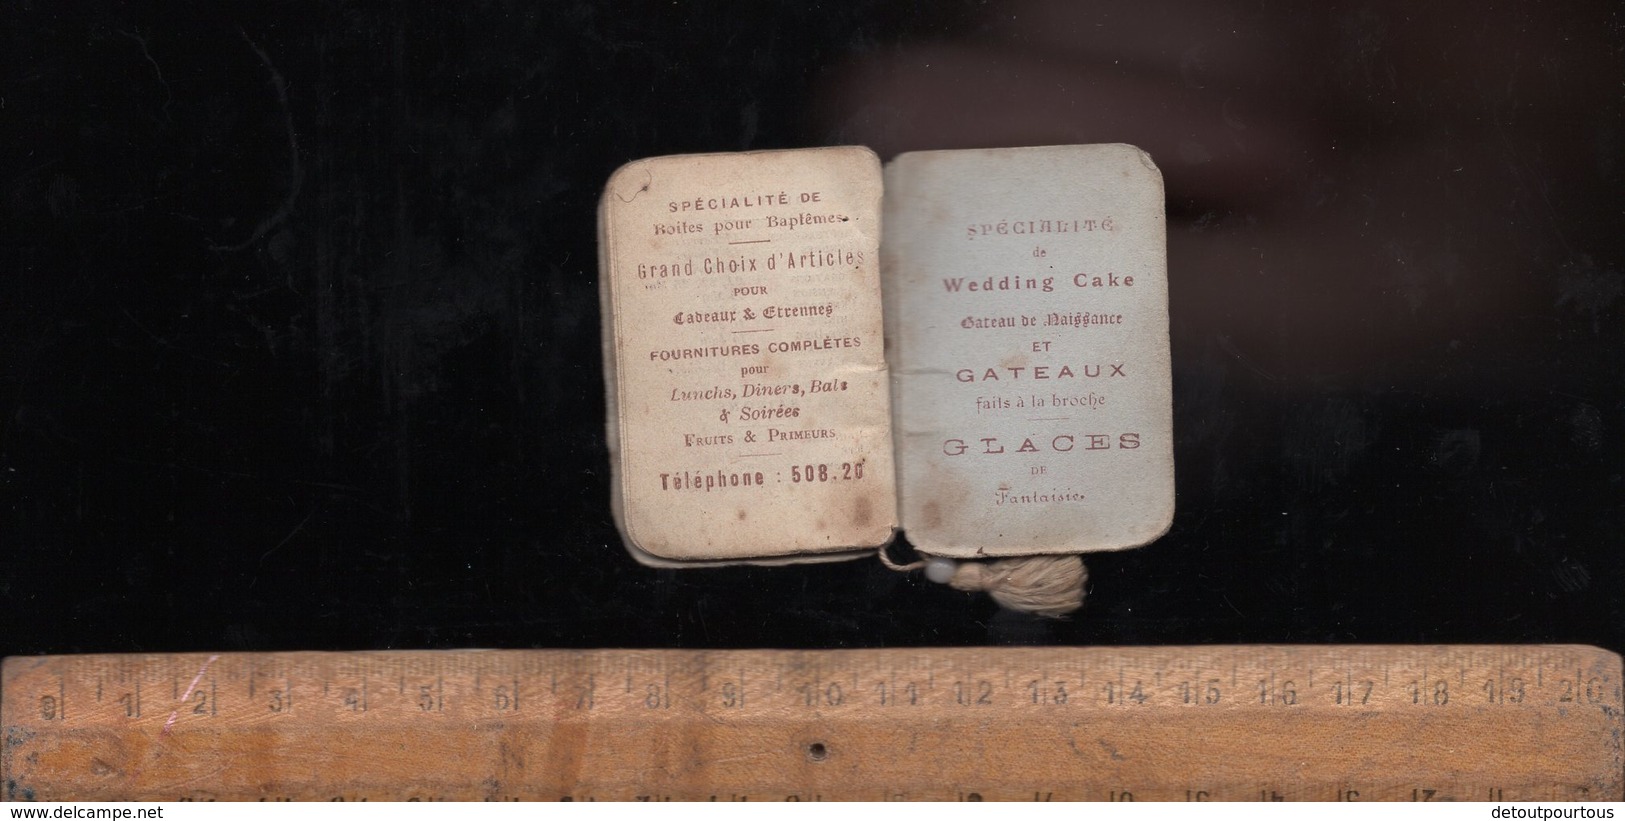 SPÉCIALITÉ DE
Boites pour Baptêmes.
Grand Choix d'Articles
POUR
Cadeaux & Etrennes
FOURNITURES COMPLÈTES
pour
Lunchs, Diners, Bals
& Soirées
FRUITS & PRIMEURS
Téléphone : 508.20
SPÉCIALITÉ
de
Wedding Cake
Gateau de Naissance
ET
GATEAUX
faits à la broche
GLACES
DE
Fantaisie.
0 1 2 3 4 5 6 7 8 9 10 11 12 13 14 15 16 17 18 19 20
© delcampe.net
detoutpourtous